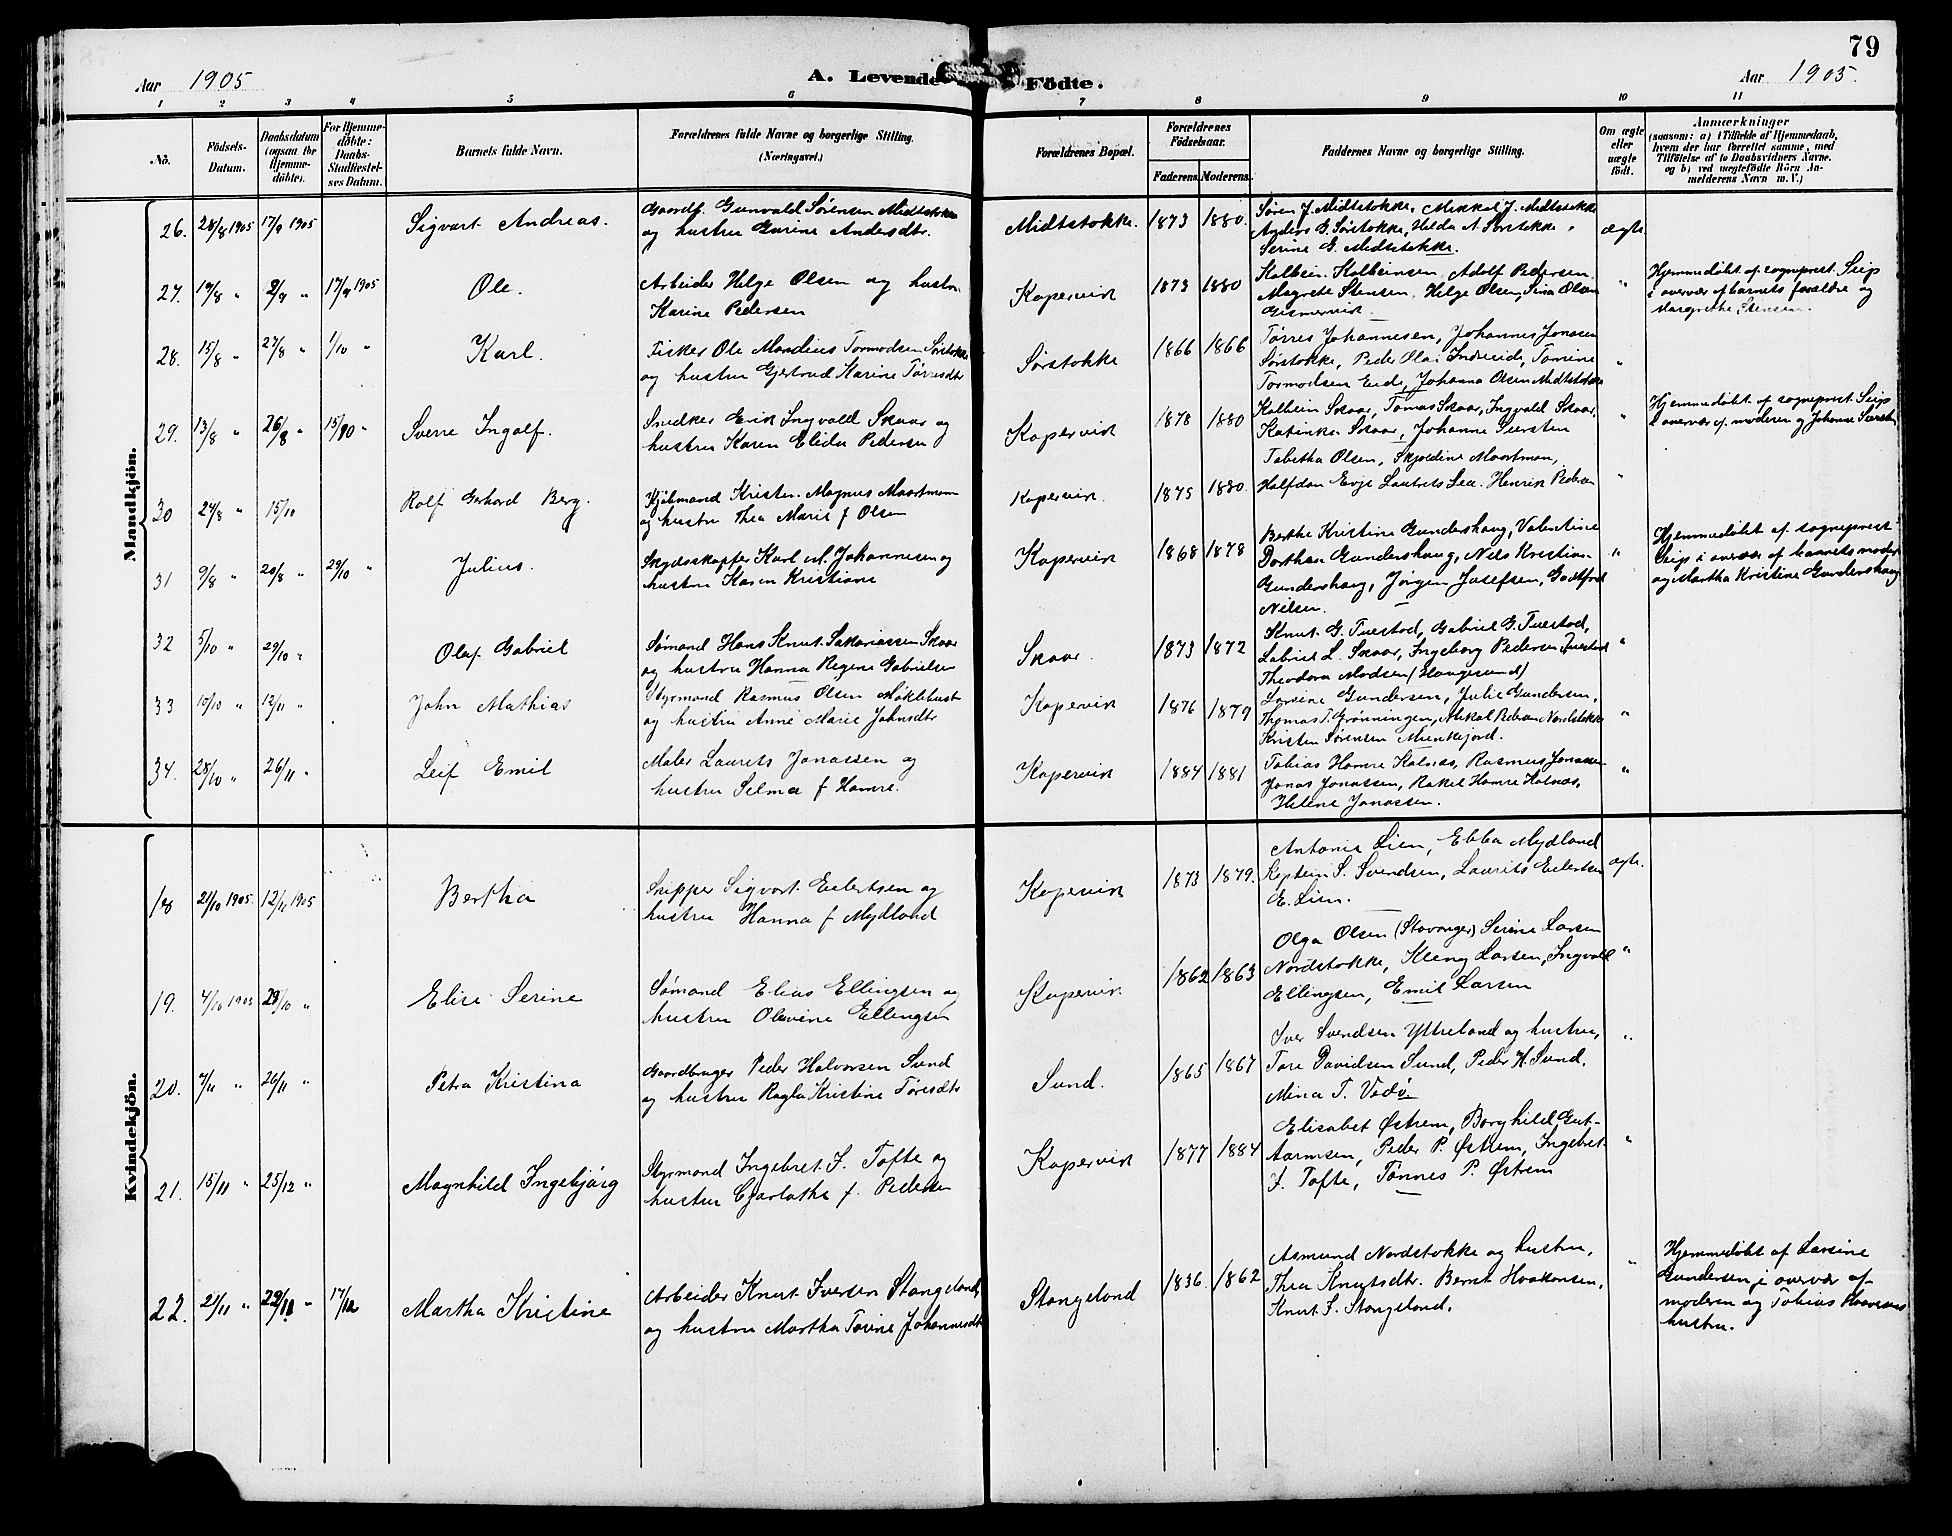 79
Aar 1905
A. Levende Födte.
Aar 1905.
1 2 3 4 5 6 7 8 9 10 11
No.
Födsels-Datum.
Daabsdatum (ogsaa for Hjemme-döbte).
For Hjemme-döbte: Daabs-Stadfæstel-ses Datum.
Barnets fulde Navn.
Forældrenes fulde Navne og borgerlige Stilling.
(Næringsvei.)
Forældrenes Bopæl.
Forældrenes Födselsaar.
Faderens. Moderens.
Faddernes Navne og borgerlige Stilling.
Om ægte eller uægte födt.
Anmærkninger
(saasom: a) i Tilfælde af Hjemmedaab,
hvem der har forrettet samme, med
Tilföielse af to Daabsvidners Navne,
og b) ved uægtefödte Börn An-
melderens Navn m. V.)
Mandkjön.
26. 28/8 1905 17/9 1905 Sigvart Andreas.
Gaardf. Gunvald Sørensen Midtstokke
og hustru Gurine Andersdtr.
Midtstokke. 1873 1880.
Søren J. Midtstokke, Mikkal J. Midtstokke
Anders G. Sørstokke, Helda A Sørstokke,
Serine G. Midtstokke.
ægte.
27. 19/8 " 2/9 " 17/9 1905 Ole.
Arbeider Helge Olsen og hustru
Karine Pedersen
Kopervik 1873 1880
Kolbein Kolbeinsen, Adolf Pedersen
Magrete Stensen, Helge Olsen, Sina Olsen
Gismervik.
"
Hjemmedøbt af sogneprest Seip
i overvær af barnets forældre og
Margrethe Stensen.
28. 15/8 " 27/8 " 1/10 " Karl.
Fisker Ole Mandius Tormodsen Sørstokke
og hustru Gjertrud Karine Tørresdtr
Sørstokke 1866 1866
Tørres Johannesen, Johannes Jonasen
Sørstokke, Peder Olai Indreeide, Tomine
Tormodsen Eide, Johanna Olsen Midtstokke
"
29. 13/8 " 26/8 " 15/10 " Sverre Ingolf.
Snedker Erik Ingvald Skaar og
hustru Karen Elida Pedersen
Kopervik 1878 1880
Kolbein Skaar, Tomas Skaar, Ingvald Skaar,
Katinka Skaar, Johanne Siersten
"
Hjemmedøbt af sogneprest Seip
i overvær af moderen og Johanne Siersten
30 24/8 " 15/10 Rolf Gerhard Berg.
Kjøbmand Kristen Magnus Maartman
og hustru Thea Marie f Olsen
Kopervik. 1875 1880.
Tabitha Olsen, Skjoldine Maartman,
Halfdan Evje Laurits Lea. Henrik Pedersen
"
31 9/8 " 20/8 " 29/10 " Julius.
Skydsskaffer Karl M. Johannesen og
hustru Karen Kristiane
Kopervik 1868 1878
Berthe Kristine Gundershaug, Valentine
Dorthea Gundershaug, Nils Kristian
Gundershaug, Jørgen Josefsen, Godtfred
Nilsen.
"
Hjemmedøbt af sogneprest
Seip i overvær af barnets moder
og Martha Kristine Gundershaug
32 5/10 " 29/10 " Olaf Gabriel
Sømand Hans Knut Sakariassen Skaar
og hustru Hanna Regine Gabrielsen
Skaar. 1873 1872
Knut G. Tuestad, Gabriel G. Tuestad,
Gabriel L. Skaar, Ingeborg Pedersen Tuestad
Theodora Madsen (Haugesund)
"
33 10/10 " 12/11 " John Mathias
Styrmand Rasmus Olsen Møklebust
og hustru Anne Marie Johnsdtr
Kopervik 1876 1879
Larsine Gundersen, Julie Gundersen,
Thomas T. Grønningen, Mikal Pedersen Nordstokke
Kristen Sørensen Munkejord.
"
34. 28/10 " 26/11 " Leif Emil
Maler Laurits Jonassen og
hustru Selma f Hamre.
Kopervik 1884 1881
Tobias Hamre Kalnæs, Rasmus Jonassen
Jonas Jonassen, Rakel Hamre Kalnæs,
Helene Jonassen.
"
Kvindekjön.
18 21/10 1905. 12/11 1905 Bertha
Skipper Sigvart Eilertsen og
hustru Hanna f Mydland
Kopervik 1873 1879.
Antonie Lien, Ebba Mydland
Kaptein S. Svendsen, Laurits Eilertsen
E. Lien.
ægte.
19. 4/10 1905 29/10 " Elise Serine
Sømand Elias Ellingsen og
hustru Olevine Ellingsen
Kopervik 1862 1863
Olga Olsen (Stavanger) Serine Larsen
Nordstokke, Kleng Larsen, Ingvald
Ellingsen, Emil Larsen
"
20. 7/11 " 26/11 " Petra Kristina
Gaardbruger Peder Halvorsen Sund
og hustru Ragla Kristine Tøresdtr
Sund. 1865 1867
Iver Svendsen Ytreland og hustru,
Tore Davidsen Sund, Peder H. Sund.
Mina T. Vedø.
"
21. 15/11 " 25/12 " Magnhild Ingebjørg
Styrmand Ingebret I. Tofte og
hustru Charlotha f. Pedersen
Kopervik 1877 1884
Elisabet Østrem, Borghild Gut-
tormsen, Peder P. Østrem, Ingebret
I. Tofte, Tønnes P. Østrem
"
22. 21/11 " 22/11 " 17/12 Martha Kristine
Arbeider Knut Iversen Stangeland,
og hustru Martha Torine Johannesdtr
Stangeland 1836. 1862
Asmund Nordstokke og hustru,
Thea Knutsdtr. Bernt Haakonsen,
Knut I. Stangeland.
"
Hjemmedøbt af Larsine
Gundersen i overvær af
moderen og Tobias Haavesens
hustru.